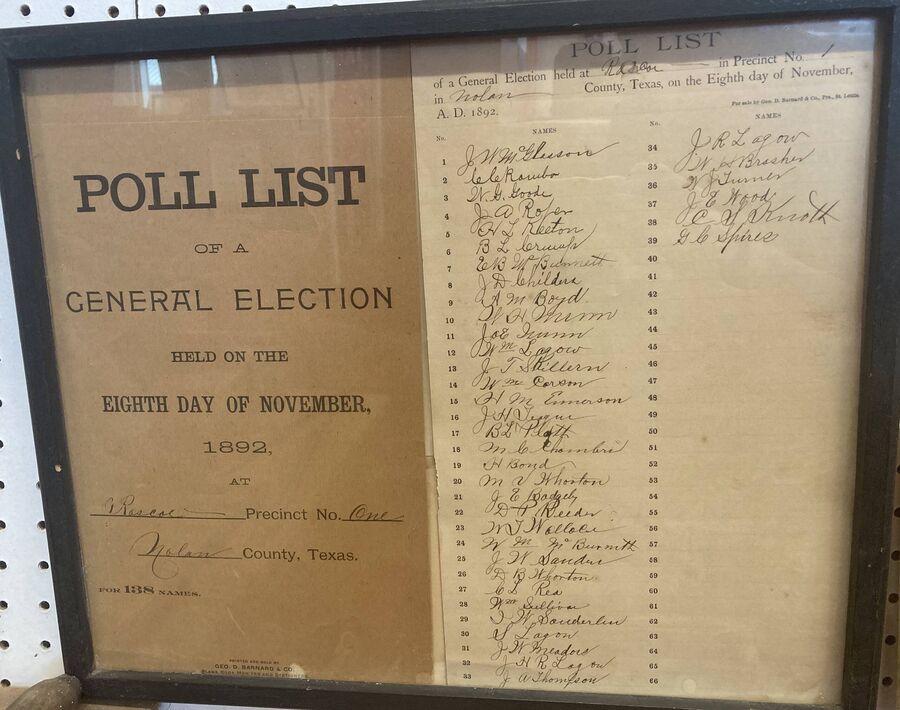 POLL LIST
OF A
GENERAL ELECTION
HELD ON THE
EIGHTH DAY OF NOVEMBER,
1892,
AT
Roscoe Precinct No. One
Nolan County, Texas.
FOR 138 NAMES.
PRINTED AND SOLD BY
GEO. D. BARNARD & CO.
POLL LIST
of a General Election held at Roscoe in Precinct No. 1
in Nolan County, Texas, on the Eighth day of November,
A. D. 1892.
For sale by Geo. D. Barnard & Co., Pra., St. Louis
No. NAMES
1 J W McGleason
2 C C
3 W. G. Goode
4 J A
5 H L Keeton
6 B L
7 E B Mc Burnett
8 J D Childers
9 A M Boyd
10 W H Nunn
11 Joe Nunn
12 Wm Lagow
13 J T Skillern
14 Wm Carson
15 H M Emmerson
16 J H Teague
17 B L Platt
18 M C
19 H Boyd
20 M V Whorton
21 J E Badgely
22 D P Reeder
23 W T Wallace
24 W M McBurnett
25 J W Sanders
26 D B Whorton
27 C L Rea
28 Wm Sullivan
29 W Sanderlin
30 Lagow
31 J W Meadors
32 J H R Lagow
33 J A Thompson
No. NAMES
34 J R Lagow
35 Brasher
36 W J Turner
37 J E Wood
38 C Knott
39 G C Spires
40
41
42
43
44
45
46
47
48
49
50
51
52
53
54
55
56
57
58
59
60
61
62
63
64
65
66